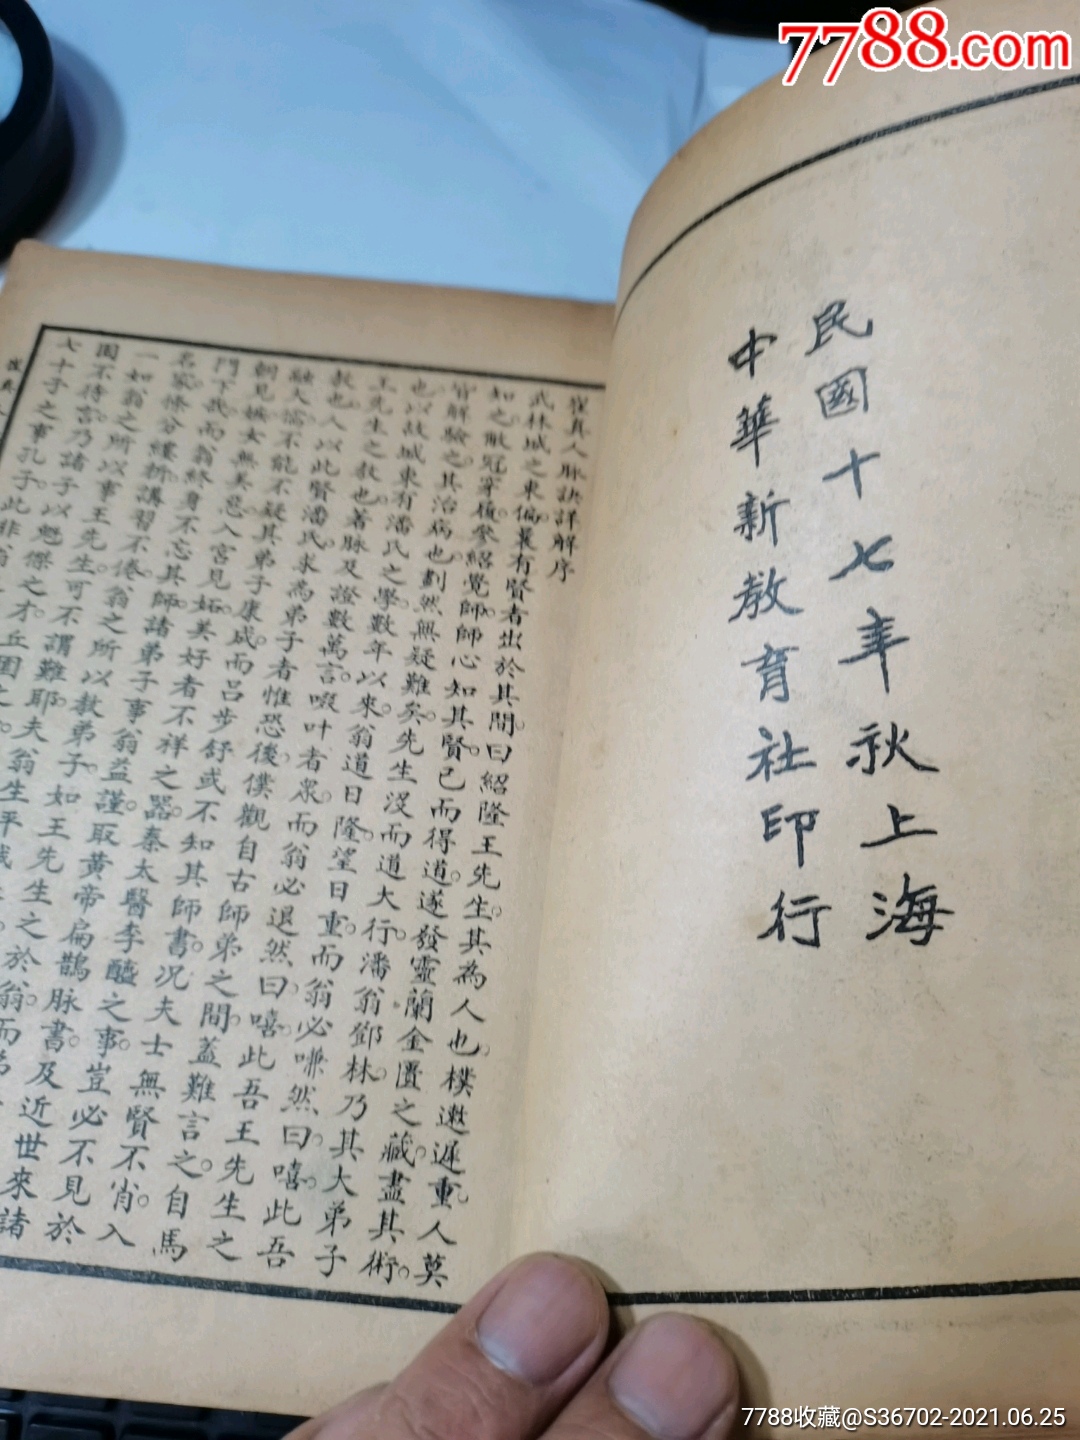 7788.com
民國十七年秋上海
中華新教育社印行
崔真人脉訣詳解序
武林城之東偏最有賢者出於其間曰紹隆王先生其為人也樸遬遲重人莫
知之敝冠穿履參紹覺師師心知其賢已而得道遂發靈蘭金匱之藏盡其術
皆解驗之其治病也劃然無疑難矣先生沒而道大行潘翁鄧林乃其大弟子
也以故城東有潘氏之學數年以來翁道日隆望日重而翁必嗛然曰嘻此吾
王先生之教也著脉及證數萬言啜叶者眾而翁必退然曰嘻此吾王先生之
教也人以此賢潘氏求為弟子者惟恐後僕觀自古師弟之間蓋難言之自馬
融大儒不能不疑其弟子康成而呂步舒或不知其師書况夫士無賢不肖入
朝見嫉女無美惡入宮見妬美好者不祥之器秦太醫李醯之事豈必不見於
門下哉而翁終身不忘其師諸弟子事翁益謹取黃帝扁鵲脉書及近世來諸
名家條分縷析講習不倦翁之所以教弟子如王先生之於翁而
一如翁之所以事王先生可不謂難耶夫翁生平
固不待言乃諸子以魁傑之才丘園之
七十子之事孔子此非翁
7788收藏@S36702-2021.06.25